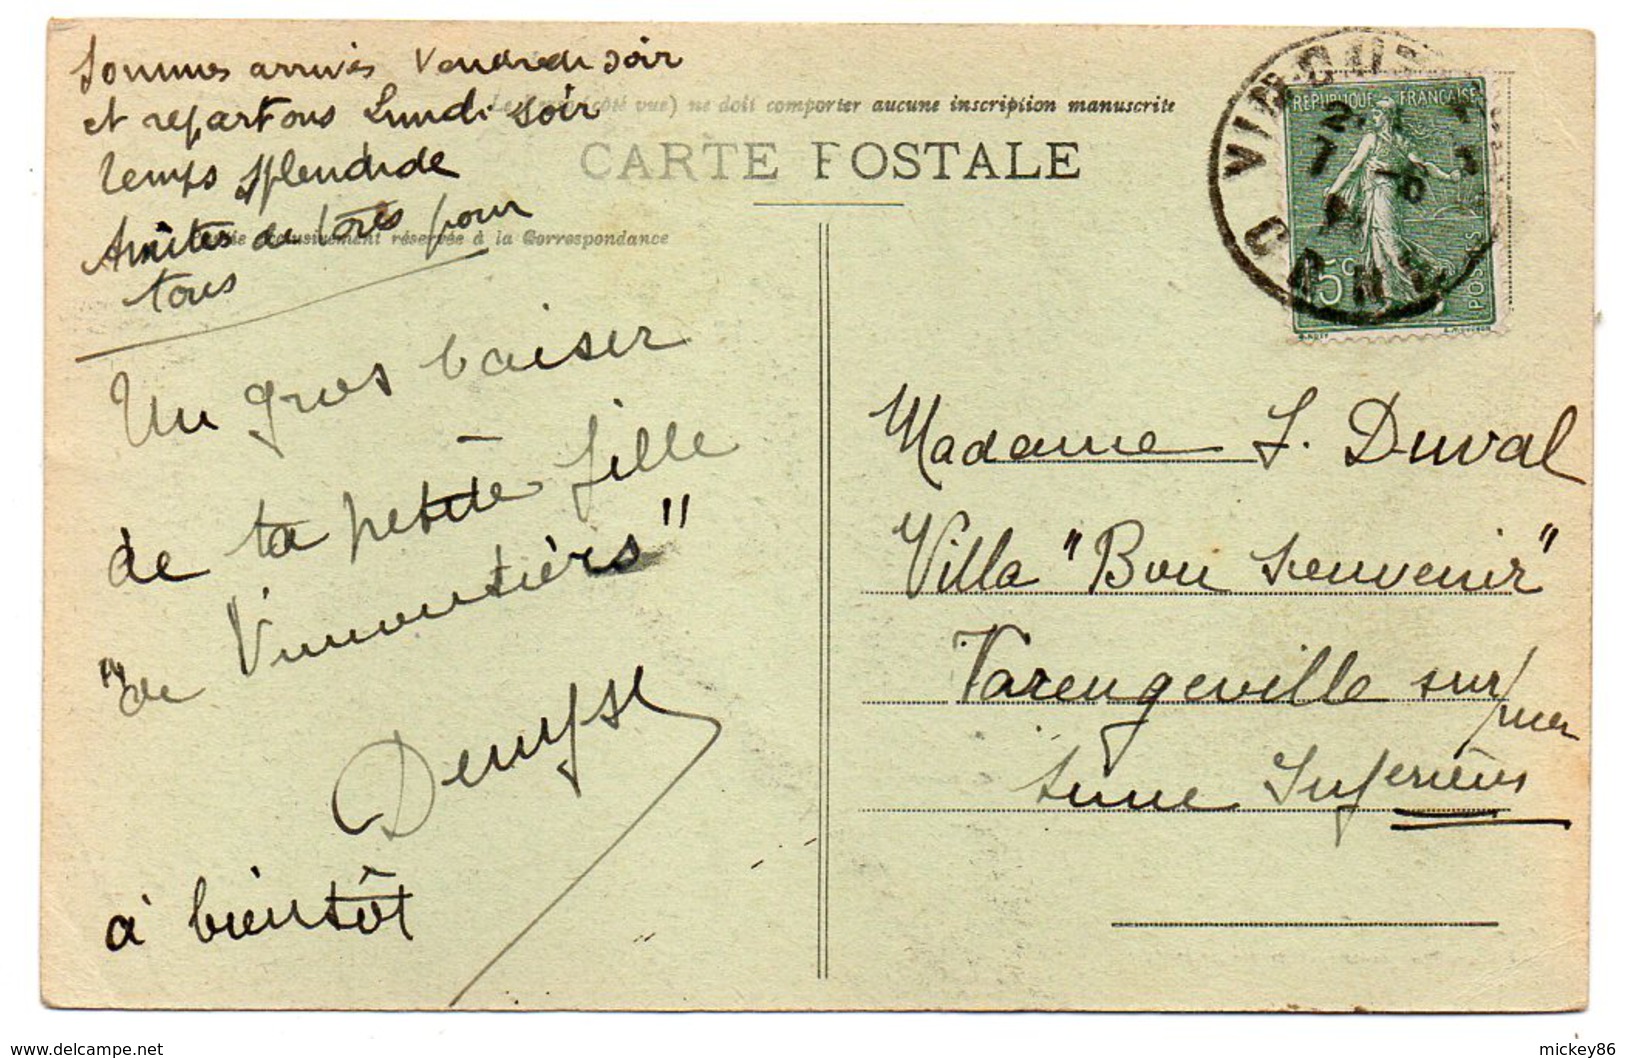 Sommes arrivés Vendredi soir
et repartons Lundi soir
temps splendide
Amitiés de tous pour
tous
Un gros baiser
de ta petite fille
"de Vimoutiers"
Denyse
à bientôt
(côté vue) ne doit comporter aucune inscription manuscrite
CARTE POSTALE
exclusivement réservée à la Correspondance
RÉPUBLIQUE FRANÇAISE
15c
POSTES
Madame J. Duval
Villa "Bon Souvenir"
Varengeville sur
mer
Seine Inférieure
delcampe.net
mickey86